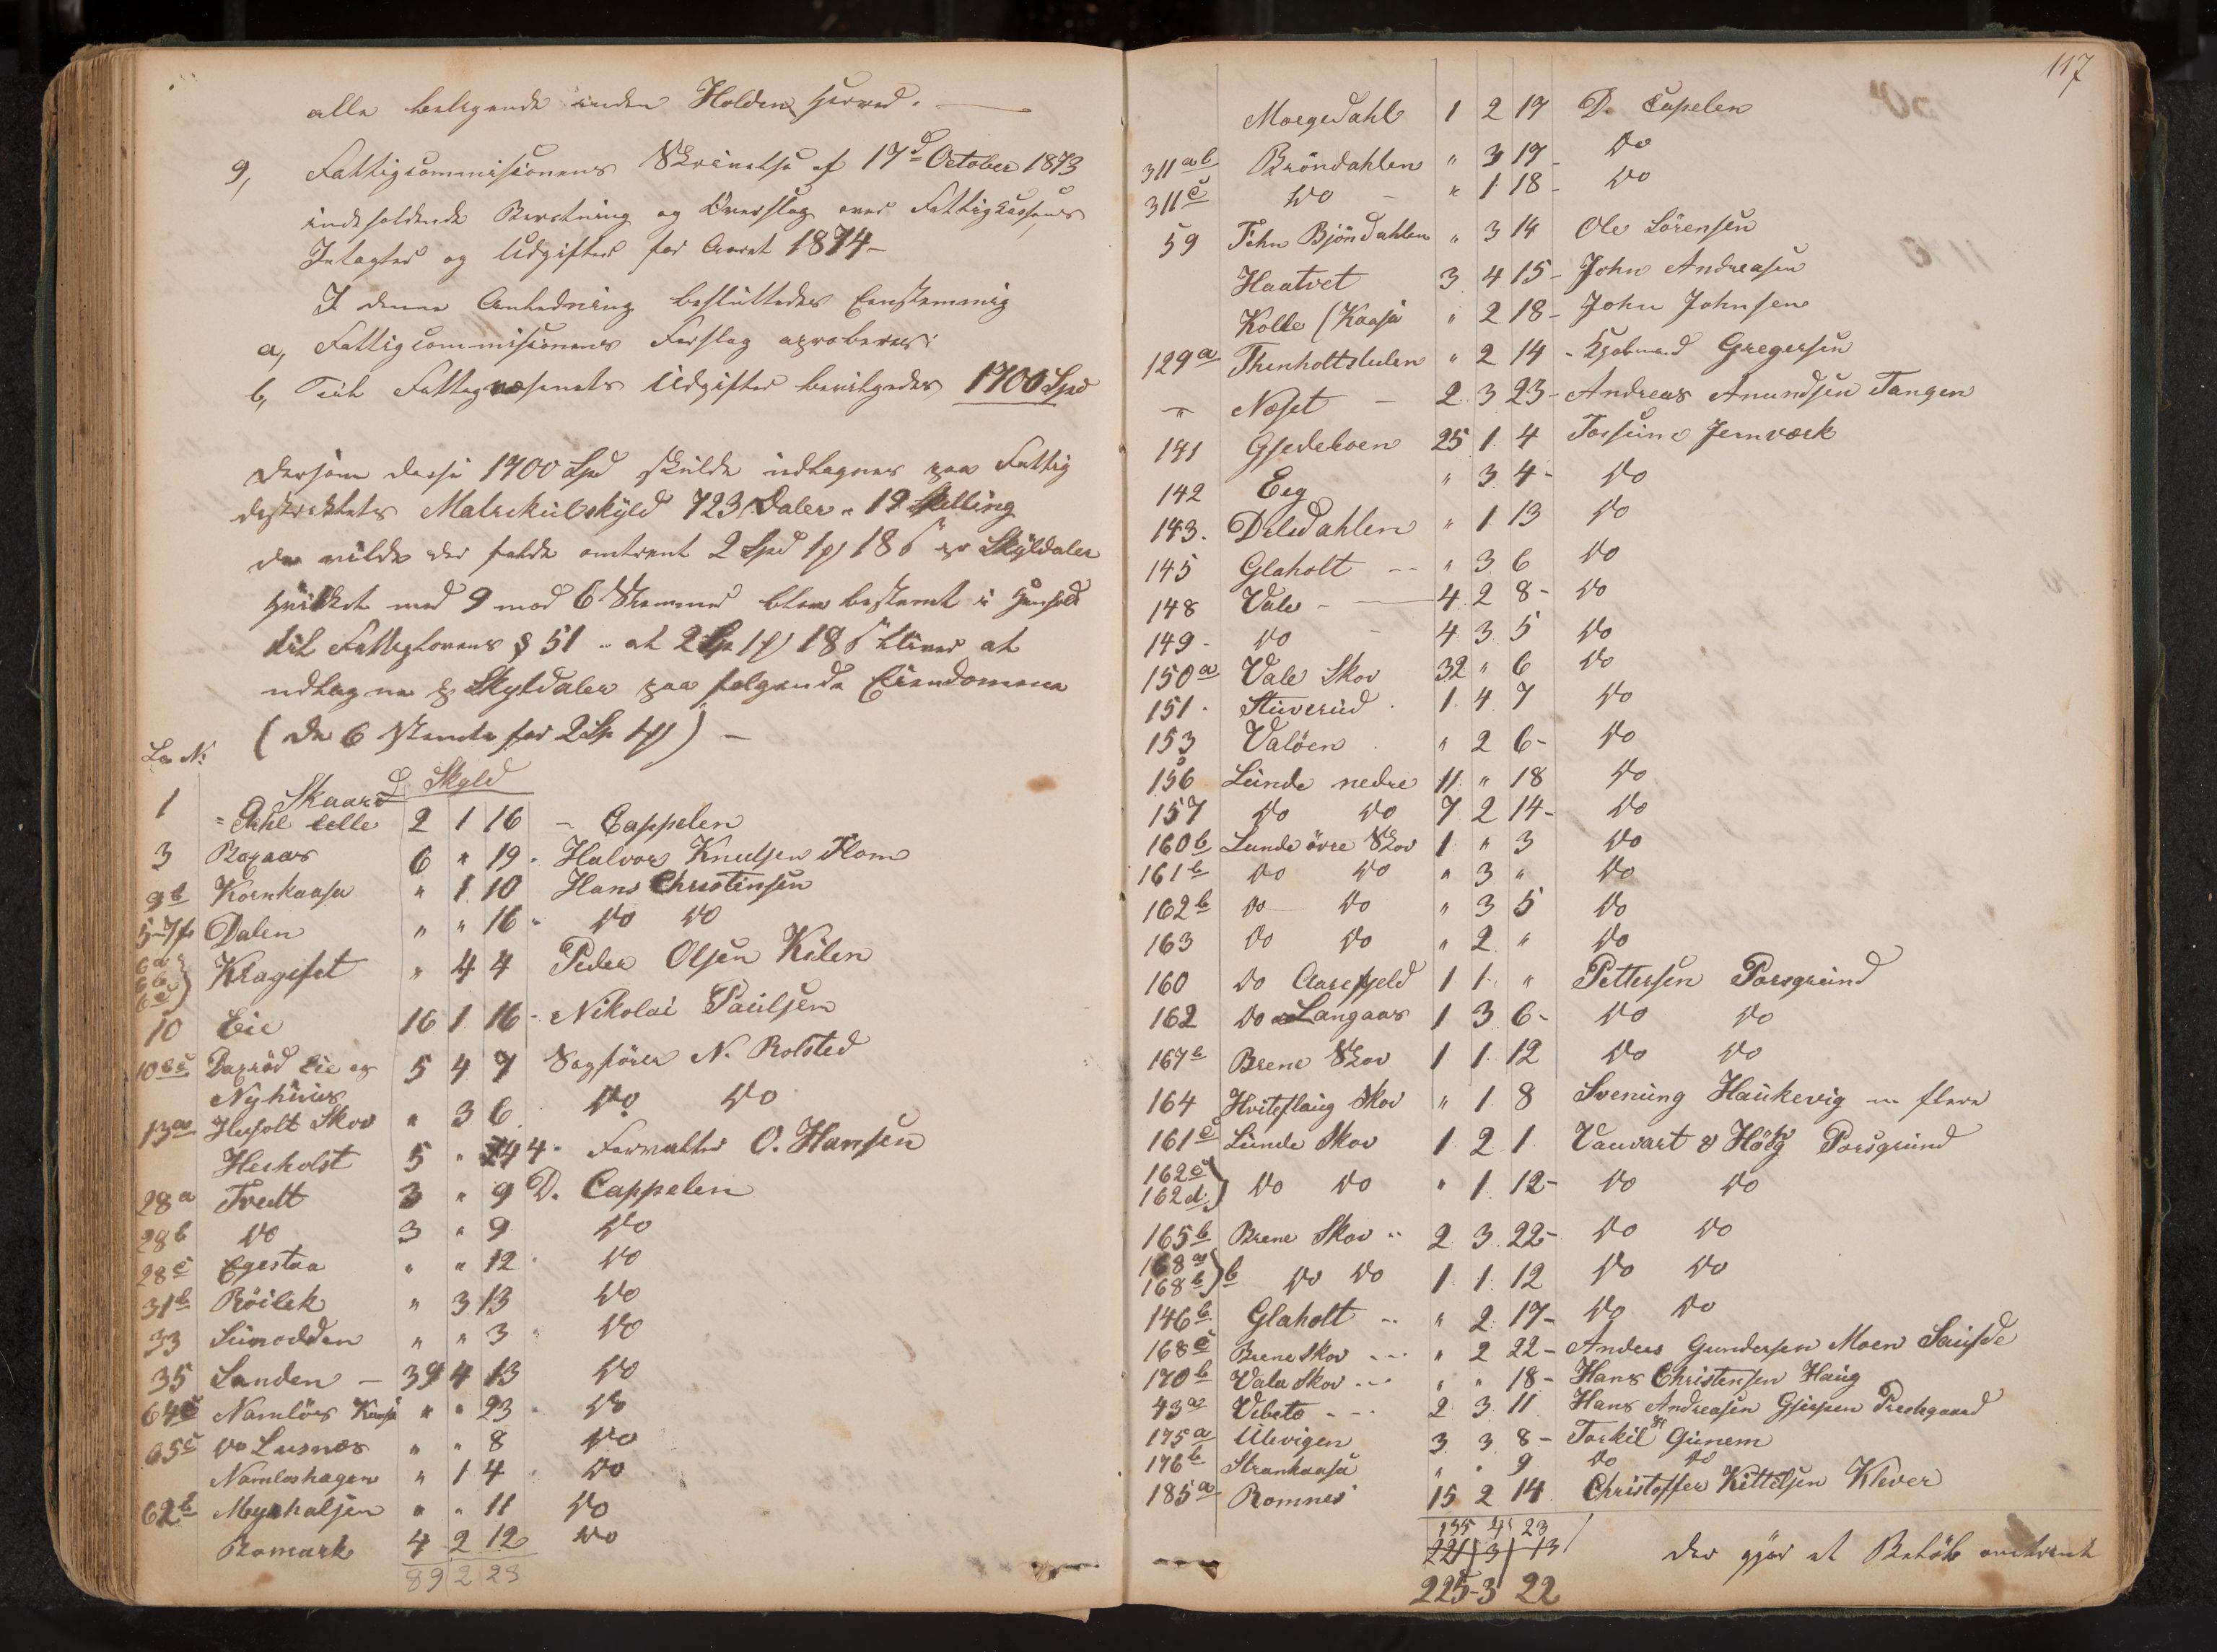 alle beliggende inden Holden Herred. —
9, Fattigcommisionens Skrivelse af 17d October 1873
indeholdende Beretning og Overslag over Fattigkassens
Intægter og Udgifter for Aaret 1874 –
I denne Anledning besluttedes Eenstemmig
a, Fattigcommisionens Forslag aproberes
b, Til Fattigvæsenets Udgifter bevilgedes 1700 Spd
Dersom disse 1700 Spd skulde udtagnes paa Fattig
destriktets Matrikulskyld 723 Daler " 19 Skilling
da vilde der falde omtrent 2 Spd 1 18 s pr Skylddaler
Hvilket med 9 mod 6 Stemmer blev bestemt i Henhold
til Fattiglovens § 51 - at 2 Sp 1 18 s bliver at
udtagne p Skyldaler paa følgende Eiendomme
(de 6 stemte for 2 Sp 1) –
Lø N: Skyld
1 Skaard
= Dahl lille 2 1 16 – Cappelen
3 Rogaas 6 " 19 - Halvor Knudsen Flom
9b Kornkaasa " 1 10 Hans Christensen
5-7f Dalen " " 16 - Do Do
6a 6b 6c Krageset " 4 4 Peder Olsen Kilen
10 Eie 16 1 16 - Nikolai Paulsen
10bc Daxrød Eie og 5 4 7 Sagfører N. Rolsted
Nyhuus
13a Hesolt Skov " 3 6 Do Do
Hesholst 5 " 4 - Forvalter O. Hansen
28a Tvedt 3 " 9 D. Cappelen
28b Do 3 " 9 Do
28c Egestaa " " 12 - Do
31b Röilek " 3 13 Do
33 Sunodden " " 3 " Do
35 Sanden – 39 4 13 Do
64c Namløs Kaasa " " 23 - Do
65c Do Lusnæs " " 8 Do
Namløshagen " 1 4 - Do
62b Myrhalsen " " 11 Do
Romark 4 2 12 Do
89 2 23
117
Moegedahl 1 2 19 D. Capelen
311ab Bröndahlen " 3 19 – Do
311c Do – " 1 18 – Do
59 Fehn Bjöndahlen " 3 14 Ole Sörensen
Haatvet 3 4 15 – John Andreasen
Kolle (Kaasa " 2 18 – John Johnsen
129a Thenholtstulen " 2 14 - Gregersen
" Næset – 2 3 23 – Andreas Amundsen Tangen
141 Gjedeboen 25 1 4 Fossum Jernværk
142 Eeg " 3 4 – Do
143. Deledahlen " 1 13 Do
145 Glaholt -- " 3 6 Do
148 Vale – 4 2 8 – Do
149 - Do – 4 3 5 Do
150a Vale Skov 32 " 6 Do
151 - Stuverud - 1 4 7 Do
153 Valöen . " 2 6 – Do
156 Lunde nedre 11 " 18 Do
157 Do Do 7 2 14 – Do
160b Lunde övre Skov 1 " 3 Do
161b Do Do " 3 " Do
162b Do Do " 3 5 Do
163 Do Do " 2 " Do
160 Do Aasefjeld 1 1 " Pettersen Porsgrund
162 Do Langaas 1 3 6 – Do Do
167b Brene Skov 1 1 12 Do Do
164 Hviteflaug Skov " 1 8 Svenung Haukevig m flere
161c Lunde Skov 1 2 1 Vauvart & Höeg Porsgrund
162c 162d Do Do " 1 12 – Do Do
165b Brene Skov -- 2 3 22 – Do Do
168a 168b b Do Do 1 1 12 Do Do
146b Glaholt -- " 2 19 – Do Do
168c Brene Skov --- " 2 22 – Anders Gundersen Moen Saude
170b Vala Skov --- " " 18 – Hans Christensen Haug
43a Vibeto - - - 2 3 11 Hans Andreasen Gjerpen Prestegaard
175a Ulevigen 3 3 8 – Torkil Gunem
176b Strankaasa " " 9 Do Do
185a Romnes 15 2 14 Christoffer Kittelsen Klever
135 4 23
221 3 13
225-3 22
Der gjør et Beløb omtrent